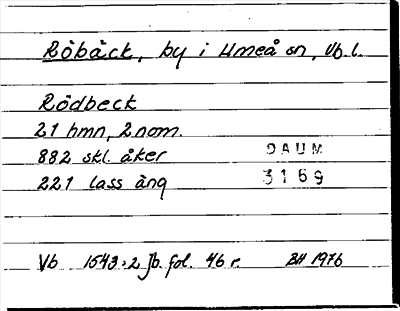 Röbäck, by i Umeå sn, Vb l.
Rödbeck
21 hmn, 2 nom.
882 skl. åker
DAUM
221 lass äng
3169
Vb 1543:2 jb. fol. 46 r. BH 1976